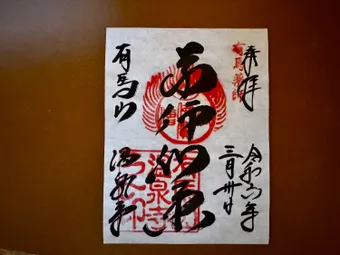 奉拝
有馬薬師
令和六年
三月卅日
薬師如来
温泉寺
有馬山
温泉寺